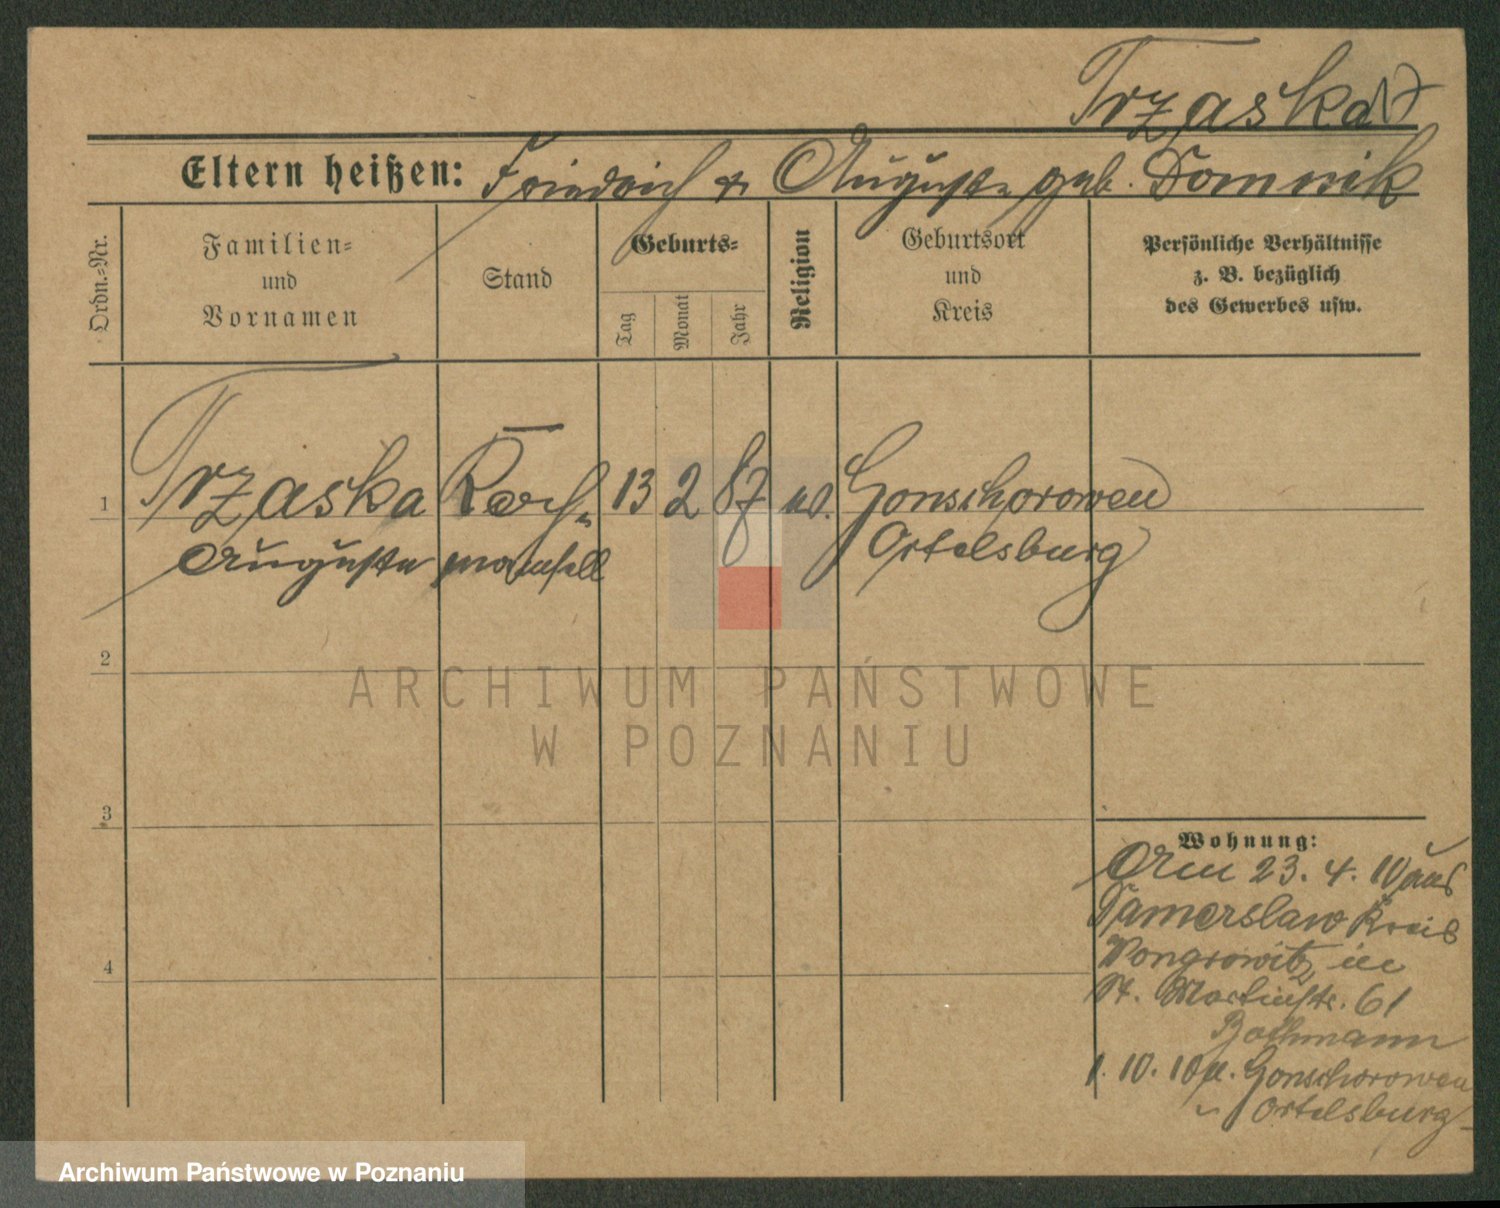 Trzaska
Eltern heißen: Friedrich & Auguste geb. Domnik
Ordn.-Nr.
Familien-
und
Vornamen
Stand
Geburts-
Tag
Monat
Jahr
Religion
Geburtsort
und
Kreis
Persönliche Verhältnisse
z. B. bezüglich
des Gewerbes usw.
1 Trzaska Koch- 13 2 87 ev. Gonschorowen
Auguste mamsell Ortelsburg
2
3
4
Wohnung:
Am 23. 4. 10 aus
Damerslaw Kreis
Wongrowitz in
St. Martinstr. 61
Bothmann
1. 10. 10 n. Gonschorowen
Ortelsburg
ARCHIWUM PAŃSTWOWE
W POZNANIU
Archiwum Państwowe w Poznaniu